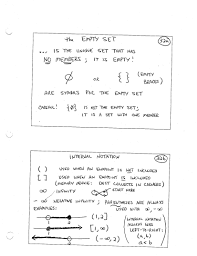 the EMPTY SET
... IS THE UNIQUE SET THAT HAS
NO MEMBERS; IT IS EMPTY!
∅ OR { } (EMPTY
BRACES)
ARE SYMBOLS FOR THE EMPTY SET
CAREFUL! {∅} IS NOT THE EMPTY SET;
IT IS A SET WITH ONE MEMBER
INTERVAL NOTATION
( ) USED WHEN AN ENDPOINT IS NOT INCLUDED
[ ] USED WHEN AN ENDPOINT IS INCLUDED
(MEMORY DEVICE: DIRT COLLECTS IN CORNERS)
∞ INFINITY START HERE
-∞ NEGATIVE INFINITY; PARENTHESES ARE ALWAYS
EXAMPLES: USED WITH ∞, -∞
(1,2]
[1,∞)
(-∞,2)
INTERVAL NOTATION
ALWAYS GOES
LEFT-TO-RIGHT:
(a,b)
a<b